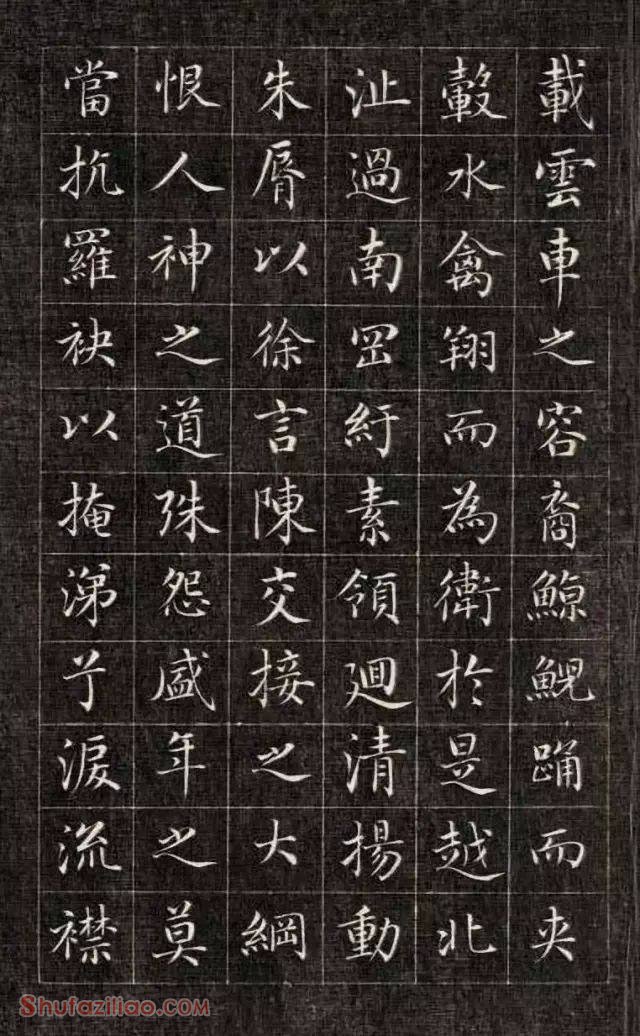 載雲車之容裔鯨鯢踊而夾
轂水禽翔而為衛於是越北
沚過南罡紆素領迴清揚動
朱脣以徐言陳交接之大綱
恨人神之道殊怨盛年之莫
當抗羅袂以掩涕兮淚流襟
Shufaziliao.com